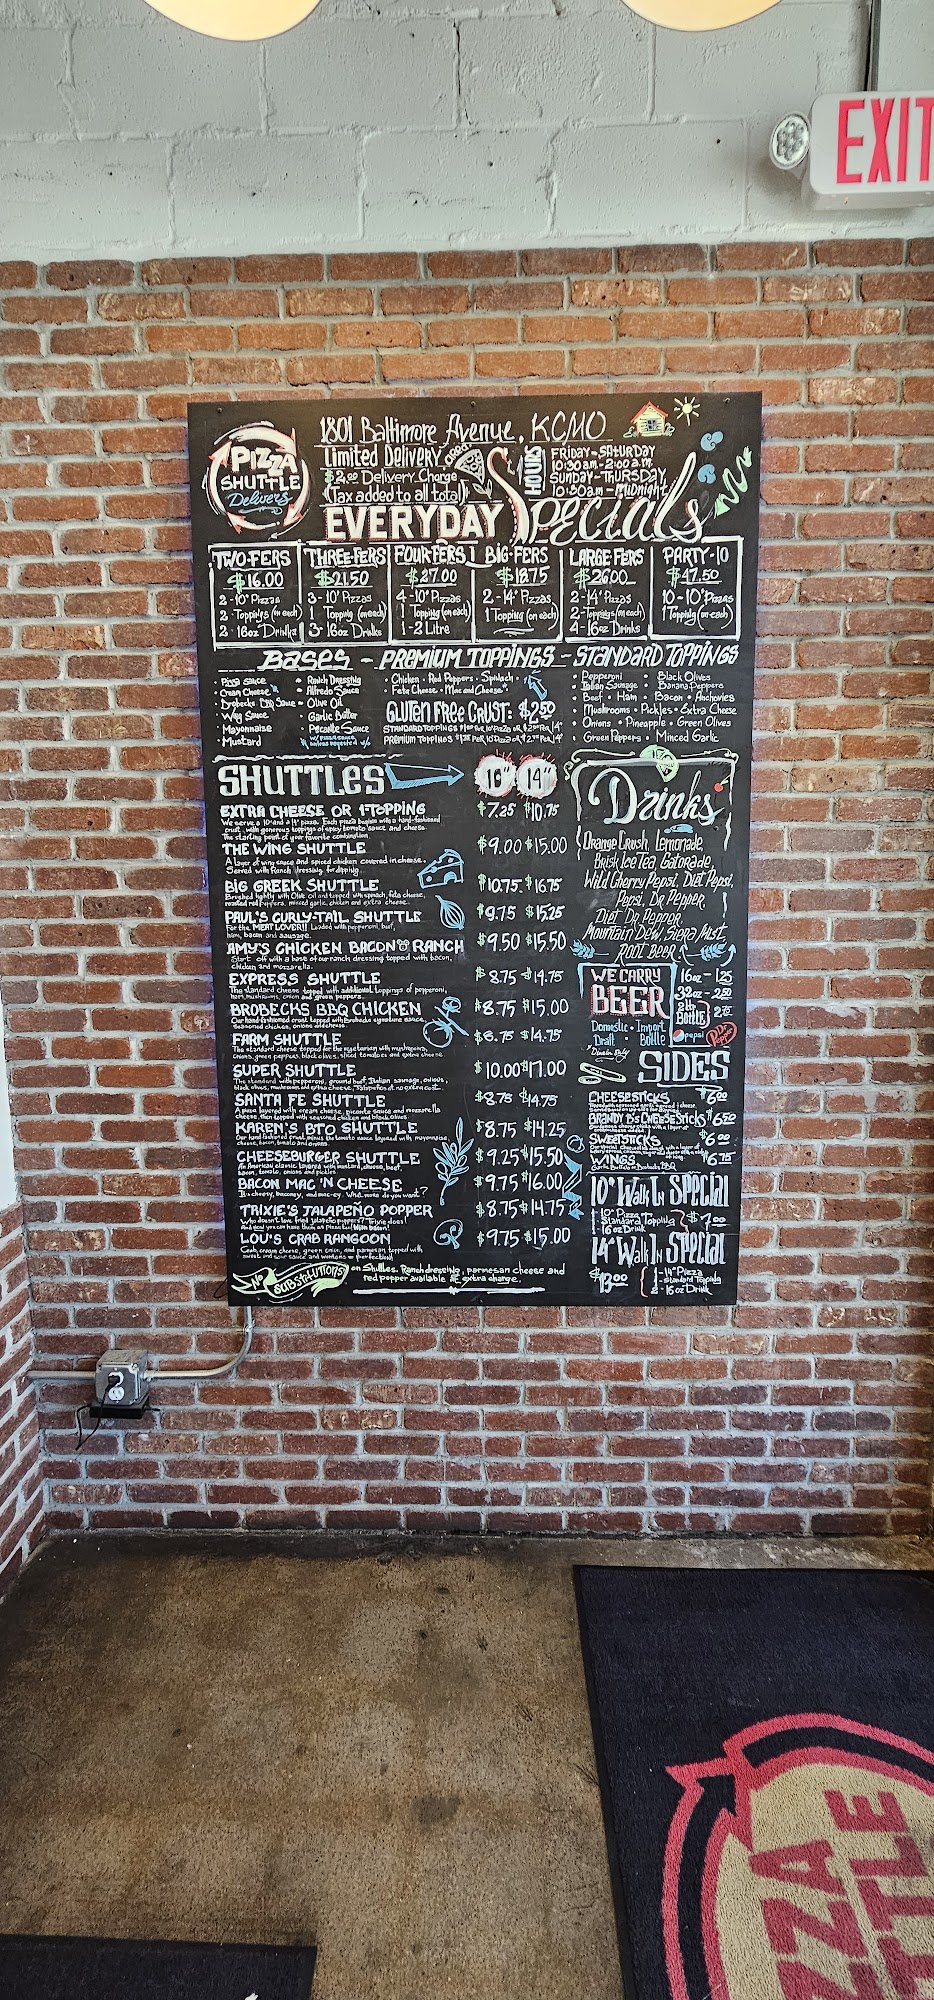 EXIT
PIZZA
SHUTTLE
Delivers
1801 Baltimore Avenue, KCMO
Limited Delivery AREA
$2.00 Delivery Charge
(Tax added to all total)
HOURS
FRIDAY-SATURDAY
10:30am-2:00a.m.
SUNDAY-THURSDAY
10:30am-MIDNIGHT
EVERYDAY Specials
TWO-FERS
$16.00
2-10" Pizzas
2-Toppings (on each)
2-16oz Drinks
THREE-FERS
$21.50
3-10" Pizzas
1 Topping (on each)
3-16oz Drinks
FOUR-FERS
$27.00
4-10" Pizzas
1 Topping (on each)
1-2 Litre
BIG-FERS
$18.75
2-14" Pizzas
1 Topping (on each)
LARGE-FERS
$26.00
2-14" Pizzas
2-Toppings (on each)
4-16oz Drinks
PARTY-10
$47.50
10-10" Pizzas
1 Topping (on each)
BASES - PREMIUM TOPPINGS - STANDARD TOPPINGS
Pizza Sauce
Cream Cheese
Brobecks BBQ Sauce
Wing Sauce
Mayonnaise
Mustard
Ranch Dressing
Alfredo Sauce
Olive Oil
Garlic Butter
Picante Sauce
Chicken · Red Peppers · Spinach
Feta Cheese · Mac and Cheese
GLUTEN FREE CRUST: $2.50
Pepperoni · Black Olives
Italian Sausage · Banana Peppers
Beef · Ham · Bacon · Anchovies
Mushrooms · Pickles · Extra Cheese
Onions · Pineapple · Green Olives
Green Peppers · Minced Garlic
SHUTTLES 10" 14"
EXTRA CHEESE OR 1-TOPPING $7.25 $10.75
We serve a 10" and a 14" pizza. Each pizza begins with a hand-fashioned
crust, with generous toppings of spicy tomato sauce and cheese.
The starting point of your favorite combination.
THE WING SHUTTLE $9.00 $15.00
A layer of wing sauce and spiced chicken covered in cheese.
Served with Ranch dressing for dipping.
BIG GREEK SHUTTLE $10.75 $16.75
Brushed lightly with Olive oil and topped with spinach, feta cheese,
roasted red peppers, minced garlic, chicken and extra cheese.
PAUL'S CURLY-TAIL SHUTTLE $9.75 $15.25
For the MEAT LOVER!! Loaded with pepperoni, beef,
ham, bacon and sausage.
AMY'S CHICKEN BACON RANCH $9.50 $15.50
Start off with a base of our ranch dressing topped with bacon,
chicken and mozzarella.
EXPRESS SHUTTLE $8.75 $14.75
The standard cheese topped with additional toppings of pepperoni,
ham, mushrooms, onion and green peppers.
BROBECKS BBQ CHICKEN $8.75 $15.00
Our hand fashioned crust topped with Brobecks signature sauce,
seasoned chicken, onions and cheese.
FARM SHUTTLE $8.75 $14.75
The standard cheese topped for the vegetarian with mushrooms,
onions, green peppers, black olives, sliced tomatoes and extra cheese.
SUPER SHUTTLE $10.00 $17.00
The standard with pepperoni, ground beef, Italian sausage, onions,
black olives, mushrooms and extra cheese. Jalapeños at no extra cost.
SANTA FE SHUTTLE $8.75 $14.75
A pizza layered with cream cheese, picante sauce and mozzarella
cheese, then topped with seasoned chicken and black olives.
KAREN'S BTO SHUTTLE $8.75 $14.25
Our hand fashioned crust minus the tomato sauce layered with mayonnaise,
cheese, bacon, tomato and onions.
CHEESEBURGER SHUTTLE $9.25 $15.50
An American classic layered with mustard, cheese, beef,
bacon, tomato, onions and pickles
BACON MAC 'N CHEESE $9.75 $16.00
It's cheesy, bacony, and mac-ey. What more do you want?
TRIXIE'S JALAPEÑO POPPER $8.75 $14.75
Who doesn't love fried jalapeño poppers? Trixie does!
And now you can have them on pizza too! With bacon!
LOU'S CRAB RANGOON $9.75 $15.00
Crab, cream cheese, green onion, and parmesan topped with
sweet and sour sauce and wontons = perfection!
No SUBSTITUTIONS on Shuttles. Ranch dressing, parmesan cheese and
red pepper available at extra charge.
Drinks
Orange Crush, Lemonade,
Brisk Ice Tea, Gatorade,
Wild Cherry Pepsi, Diet Pepsi,
Pepsi, Dr. Pepper,
Diet Dr. Pepper,
Mountain Dew, Siera Mist,
ROOT BEER
WE CARRY
BEER
Domestic · Import
Draft · Bottle
*Dine In Only
16oz - 1.25
32oz - 2.50
2 Ltr
BOTTLE
pepsi
Dr Pepper
SIDES
CHEESESTICKS $6.00
BRANDY B'S CHEESESTICKS $6.50
SWEETSTICKS $6.00
WINGS $6.75
Garlic Buffalo or Brobecks BBQ
10" Walk In Special
1 10" Pizza
1 Standard Topping
1 16oz Drink
$7.00
14" Walk In Special
$13.00
1-14" Pizza
1-Standard Topping
2-16oz Drink
ZZA
TLE